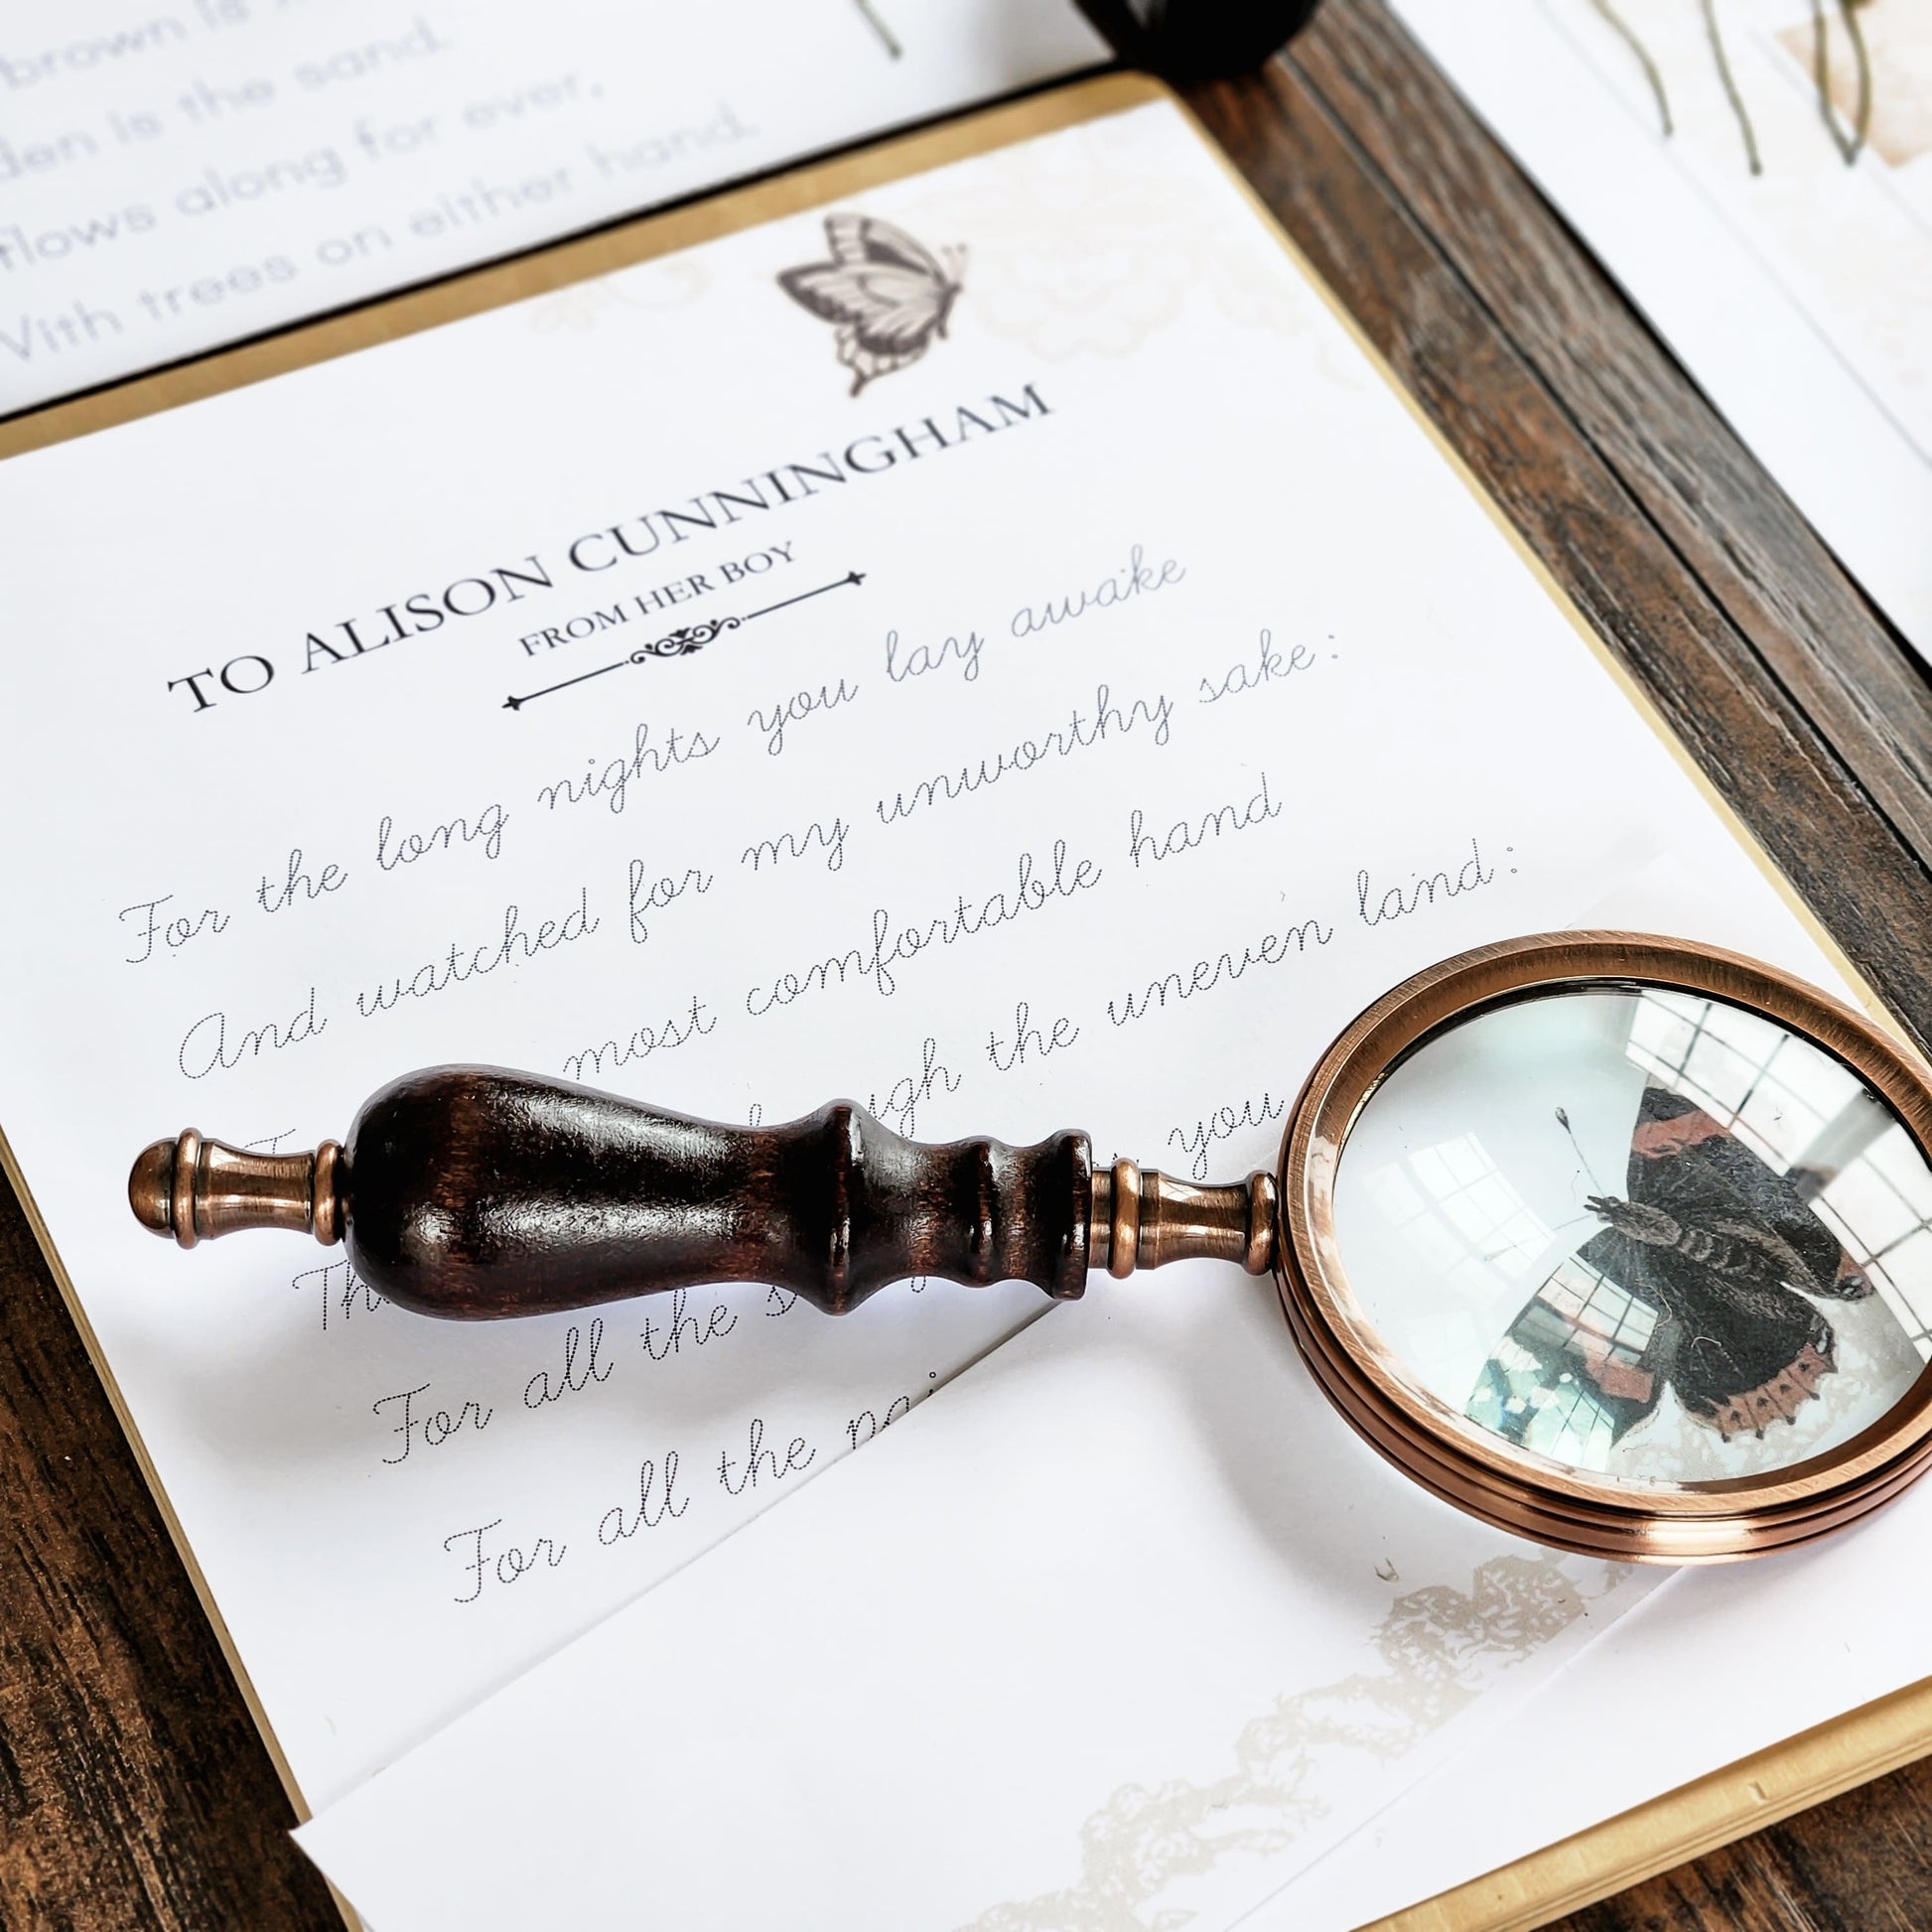 brown is
is the sand.
flows along for ever,
With trees on either hand.
TO ALISON CUNNINGHAM
FROM HER BOY
For the long nights you lay awake
And watched for my unworthy sake:
most comfortable hand
the uneven land:
you
For all the
For all the